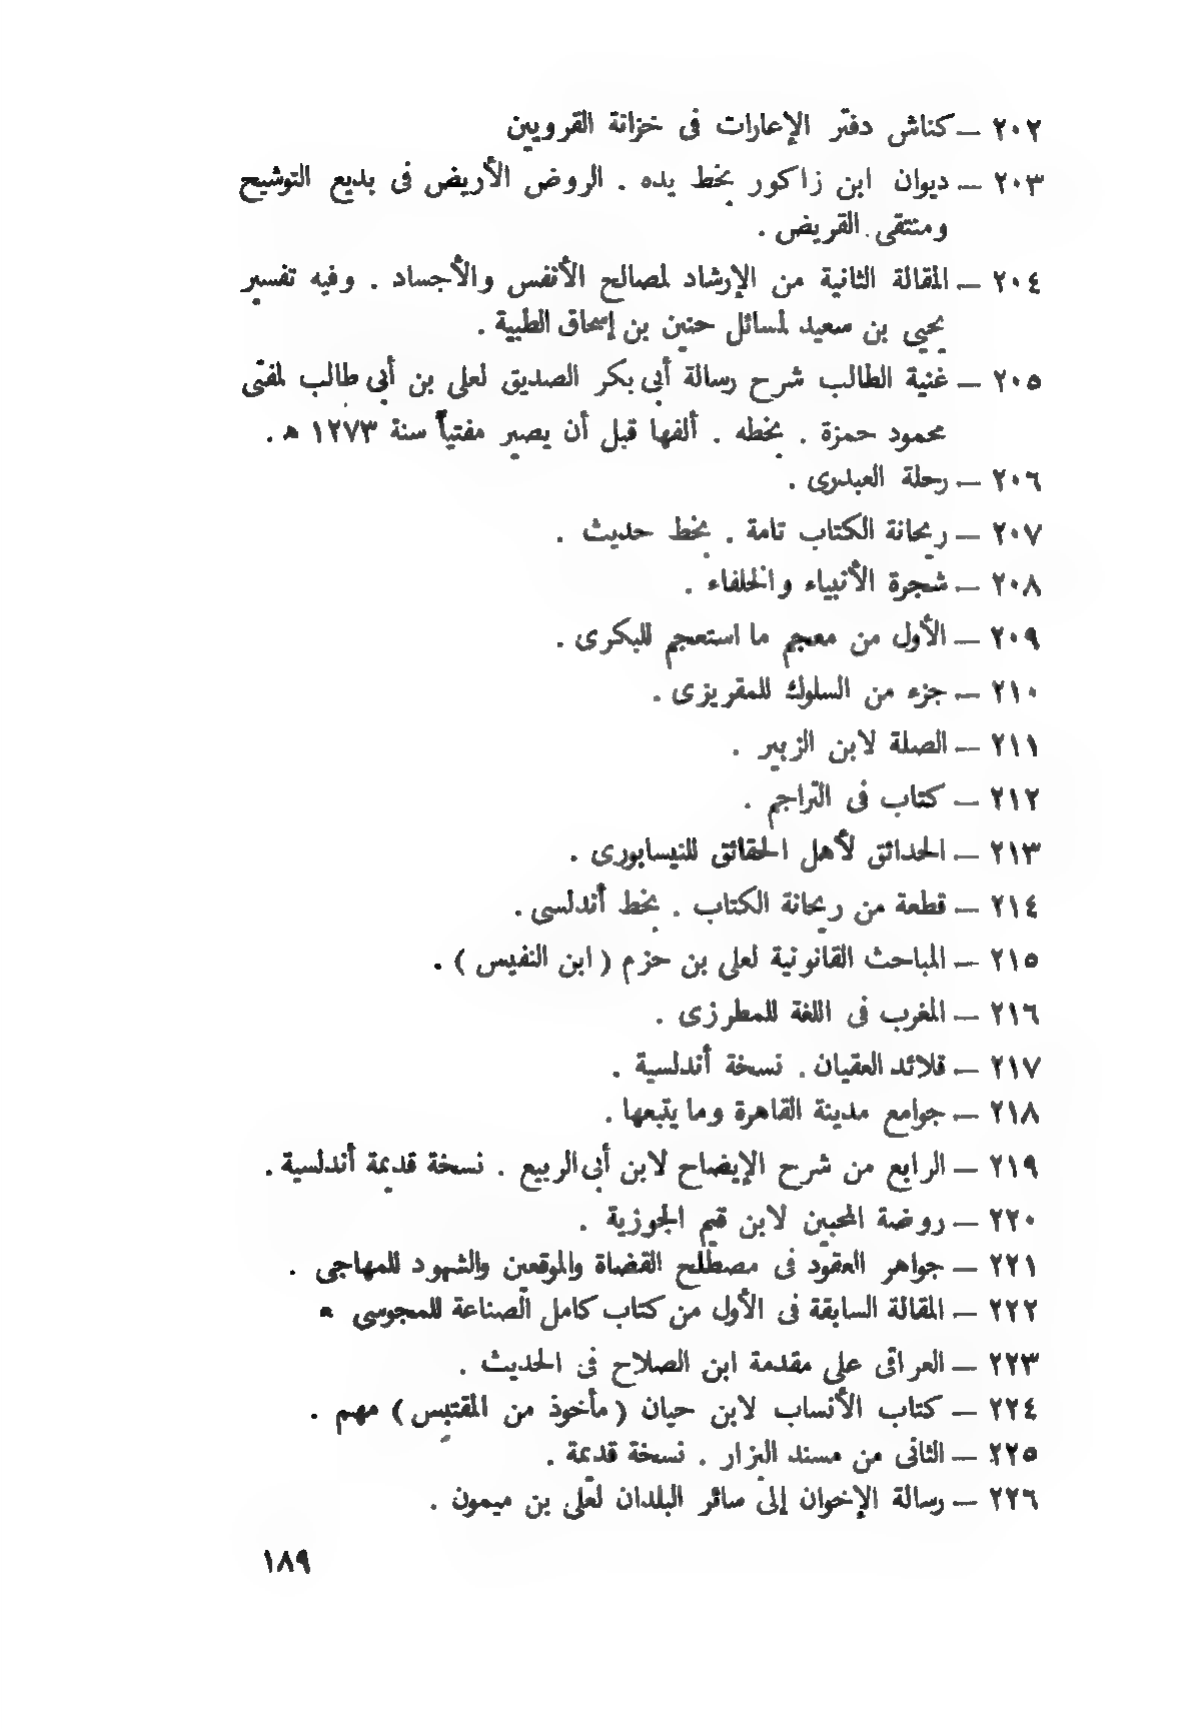 ٢٠٢ — كناش دفتر الإعارات فى خزانة القرويين
٢٠٣ — ديوان ابن زاكور بخط يده . الروض الأريض فى بديع التوشيح
ومنتقى القريض .
٢٠٤ — المقالة الثانية من الإرشاد لمصالح الأنفس والأجساد . وفيه تفسير
يحيى بن سعيد لمسائل حنين بن إسحاق الطبية .
٢٠٥ — غنية الطالب شرح رسالة أبى بكر الصديق لعلى بن أبى طالب لمفتى
محمود حمزة . بخطه . ألفها قبل أن يصير مفتياً سنة ١٢٧٣ ه .
٢٠٦ — رحلة العبدرى .
٢٠٧ — ريحانة الكتاب تامة . بخط حديث .
٢٠٨ — شجرة الأنبياء والخلفاء .
٢٠٩ — الأول من معجم ما استعجم للبكرى .
٢١٠ — جزء من السلوك للمقريزى .
٢١١ — الصلة لابن الزبير .
٢١٢ — كتاب فى التراجم .
٢١٣ — الحدائق لأهل الحقائق للنيسابورى .
٢١٤ — قطعة من ريحانة الكتاب . بخط أندلسى .
٢١٥ — المباحث القانونية لعلى بن حزم ( ابن النفيس ) .
٢١٦ — المغرب فى اللغة للمطرزى .
٢١٧ — قلائد العقيان . نسخة أندلسية .
٢١٨ — جوامع مدينة القاهرة وما يتبعها .
٢١٩ — الرابع من شرح الإيضاح لابن أبى الربيع . نسخة قديمة أندلسية .
٢٢٠ — روضة المحبين لابن قيم الجوزية .
٢٢١ — جواهر العقود فى مصطلح القضاة والموقعين والشهود للمهاجى .
٢٢٢ — المقالة السابقة فى الأول من كتاب كامل الصناعة للمجوسى .
٢٢٣ — العراقى على مقدمة ابن الصلاح فى الحديث .
٢٢٤ — كتاب الأنساب لابن حيان ( مأخوذ من المقتبس ) مهم .
٢٢٥ — الثانى من مسند البزار . نسخة قديمة .
٢٢٦ — رسالة الإخوان إلى سائر البلدان لعلى بن ميمون .
١٨٩